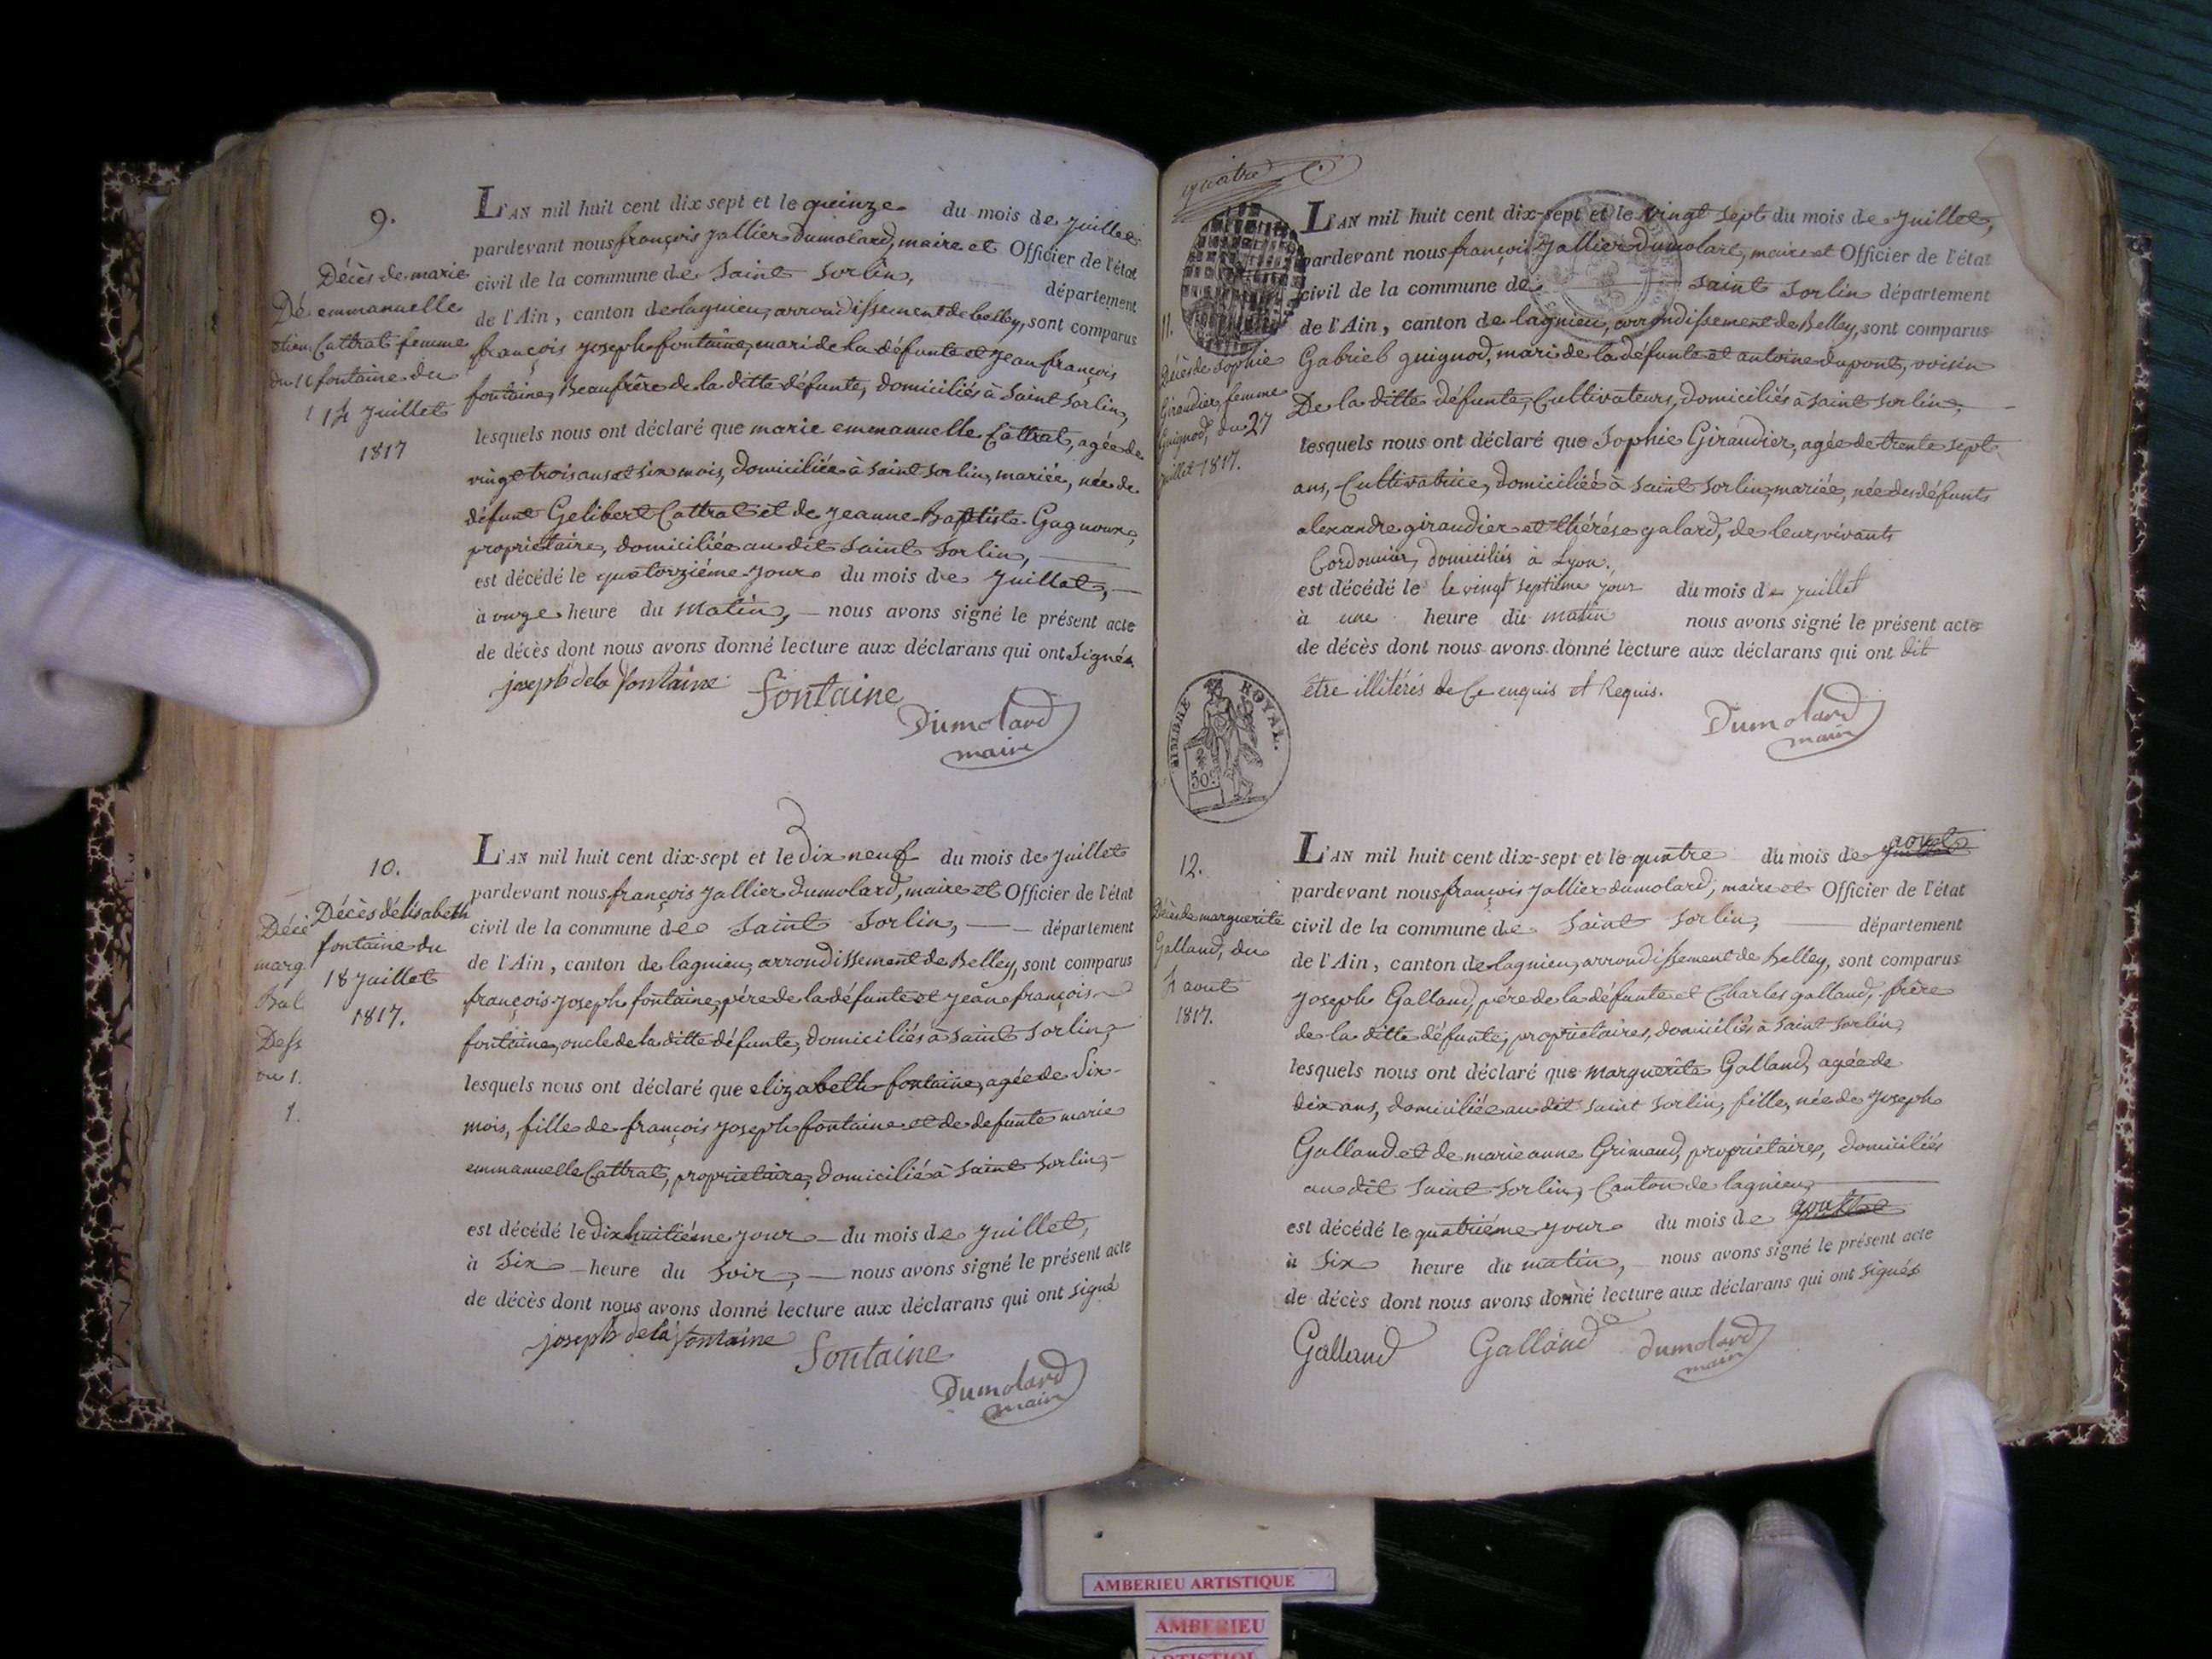 9.
Décès de marie
emmanuelle
Cattrat femme
fontaine du
14 Juillet
1817
L'AN mil huit cent dix sept et le quinze du mois de Juillet
pardevant nous françois Jallier Dumolard, maire et Officier de l'état
civil de la commune de Saint Sorlin, département
de l'Ain, canton de lagnieu, arrondissement de belley, sont comparus
françois Joseph fontaine, mari de la défunte et Jean françois
fontaine, Beaufrère de la ditte défunte, domiciliés à Saint Sorlin,
lesquels nous ont déclaré que marie emmanuelle Cattrat, agée de
vingt trois ans et six mois, domiciliée à Saint Sorlin, mariée, née de
défunt Gelibert Cattrat et de Jeanne Baptiste Gagnoux,
propriétaire, domiciliée au dit Saint Sorlin,
est décédé le quatorziéme jour du mois de Juillet,
à onze heure du matin, nous avons signé le présent acte
de décès dont nous avons donné lecture aux déclarans qui ont signés.
joseph dela fontaine
fontaine
Dumolard
maire
10.
Décès délisabeth
fontaine du
18 Juillet
1817.
L'AN mil huit cent dix-sept et le Dix neuf du mois de Juillet
pardevant nous françois Jallier dumolard, maire et Officier de l'état
civil de la commune de Saint Sorlin, département
de l'Ain, canton de lagnieu, arrondissement de Belley, sont comparus
françois Joseph fontaine, pére de la défunte et Jean françois
fontaine, oncle de la ditte défunte, domiciliés à Saint Sorlin,
lesquels nous ont déclaré que elizabeth fontaine, agée de Six
mois, fille de françois Joseph fontaine et de defunte marie
emmanuelle Cattrat, proprietaire, domicilié à Saint Sorlin,
est décédé le Dixhuitiéme jour du mois de Juillet,
à Six heure du Soir, nous avons signé le présent acte
de décès dont nous avons donné lecture aux déclarans qui ont signé
joseph dela fontaine
fontaine
Dumolard
maire
quatre
11.
Décès de Sophie
Giraudier femme
Guignod, du 27
Juillet 1817.
L'AN mil huit cent dix-sept et le vingt Sept du mois de Juillet,
pardevant nous françois Jallier Dumolart, maire et Officier de l'état
civil de la commune de Saint Sorlin département
de l'Ain, canton de lagnieu, arrondissement de Belley, sont comparus
Gabriel guignod, mari de la défunte et antoine dupont, voisin
De la ditte défunte, Cultivateurs, domiciliés à Saint Sorlin,
lesquels nous ont déclaré que Sophie Giraudier, agée de trente sept
ans, Cultivatrice, domiciliée à Saint Sorlin, mariée, née des défunts
alexandre giraudier et thérése galard, de leurs vivants
Cordonnier, domiciliés à Lyon.,
est décédé le le vingt septième jour du mois de Juillet
à une heure du matin nous avons signé le présent acte
de décès dont nous avons donné lecture aux déclarans qui ont dit
être illitérés de Ce enquis et Requis.
Dumolard
maire
TIMBRE ROYAL.
50
12.
Décès de marguerite
Galland, du
4 aout
1817.
L'AN mil huit cent dix-sept et le quatre du mois de aoust
pardevant nous françois Jallier dumolard, maire et Officier de l'état
civil de la commune de Saint Sorlin, département
de l'Ain, canton de lagnieu, arrondissement de Belley, sont comparus
Joseph Galland, pére de la défunte et Charles galland, frère
de la ditte défunte, proprietaires, domiciliés à Saint Sorlin,
lesquels nous ont déclaré que Marguerite Galland, agée de
dix ans, domiciliée au dit Saint Sorlin, fille, née de Joseph
Galland et de marie anne Grimaud, propriétaires, domiciliés
au dit Saint Sorlin, Canton de lagnieu,
est décédé le quatriéme jour du mois de
à Six heure du matin, nous avons signé le présent acte
de décès dont nous avons donné lecture aux déclarans qui ont signés
Galland
Galland
dumolard
maire
AMBERIEU ARTISTIQUE
AMBERIEU
ARTISTIQUE